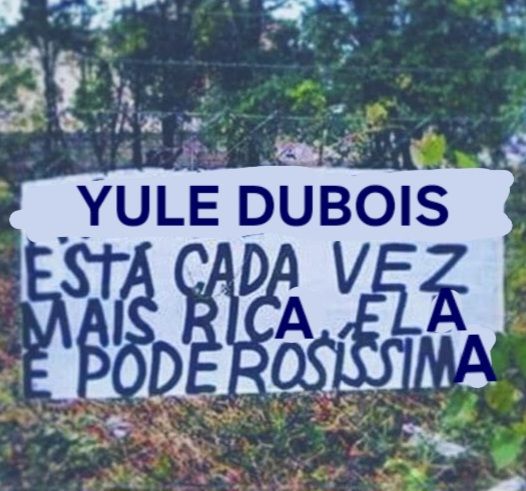 YULE DUBOIS
ESTÁ CADA VEZ
MAIS RICA, ELA
É PODEROSÍSSIMA